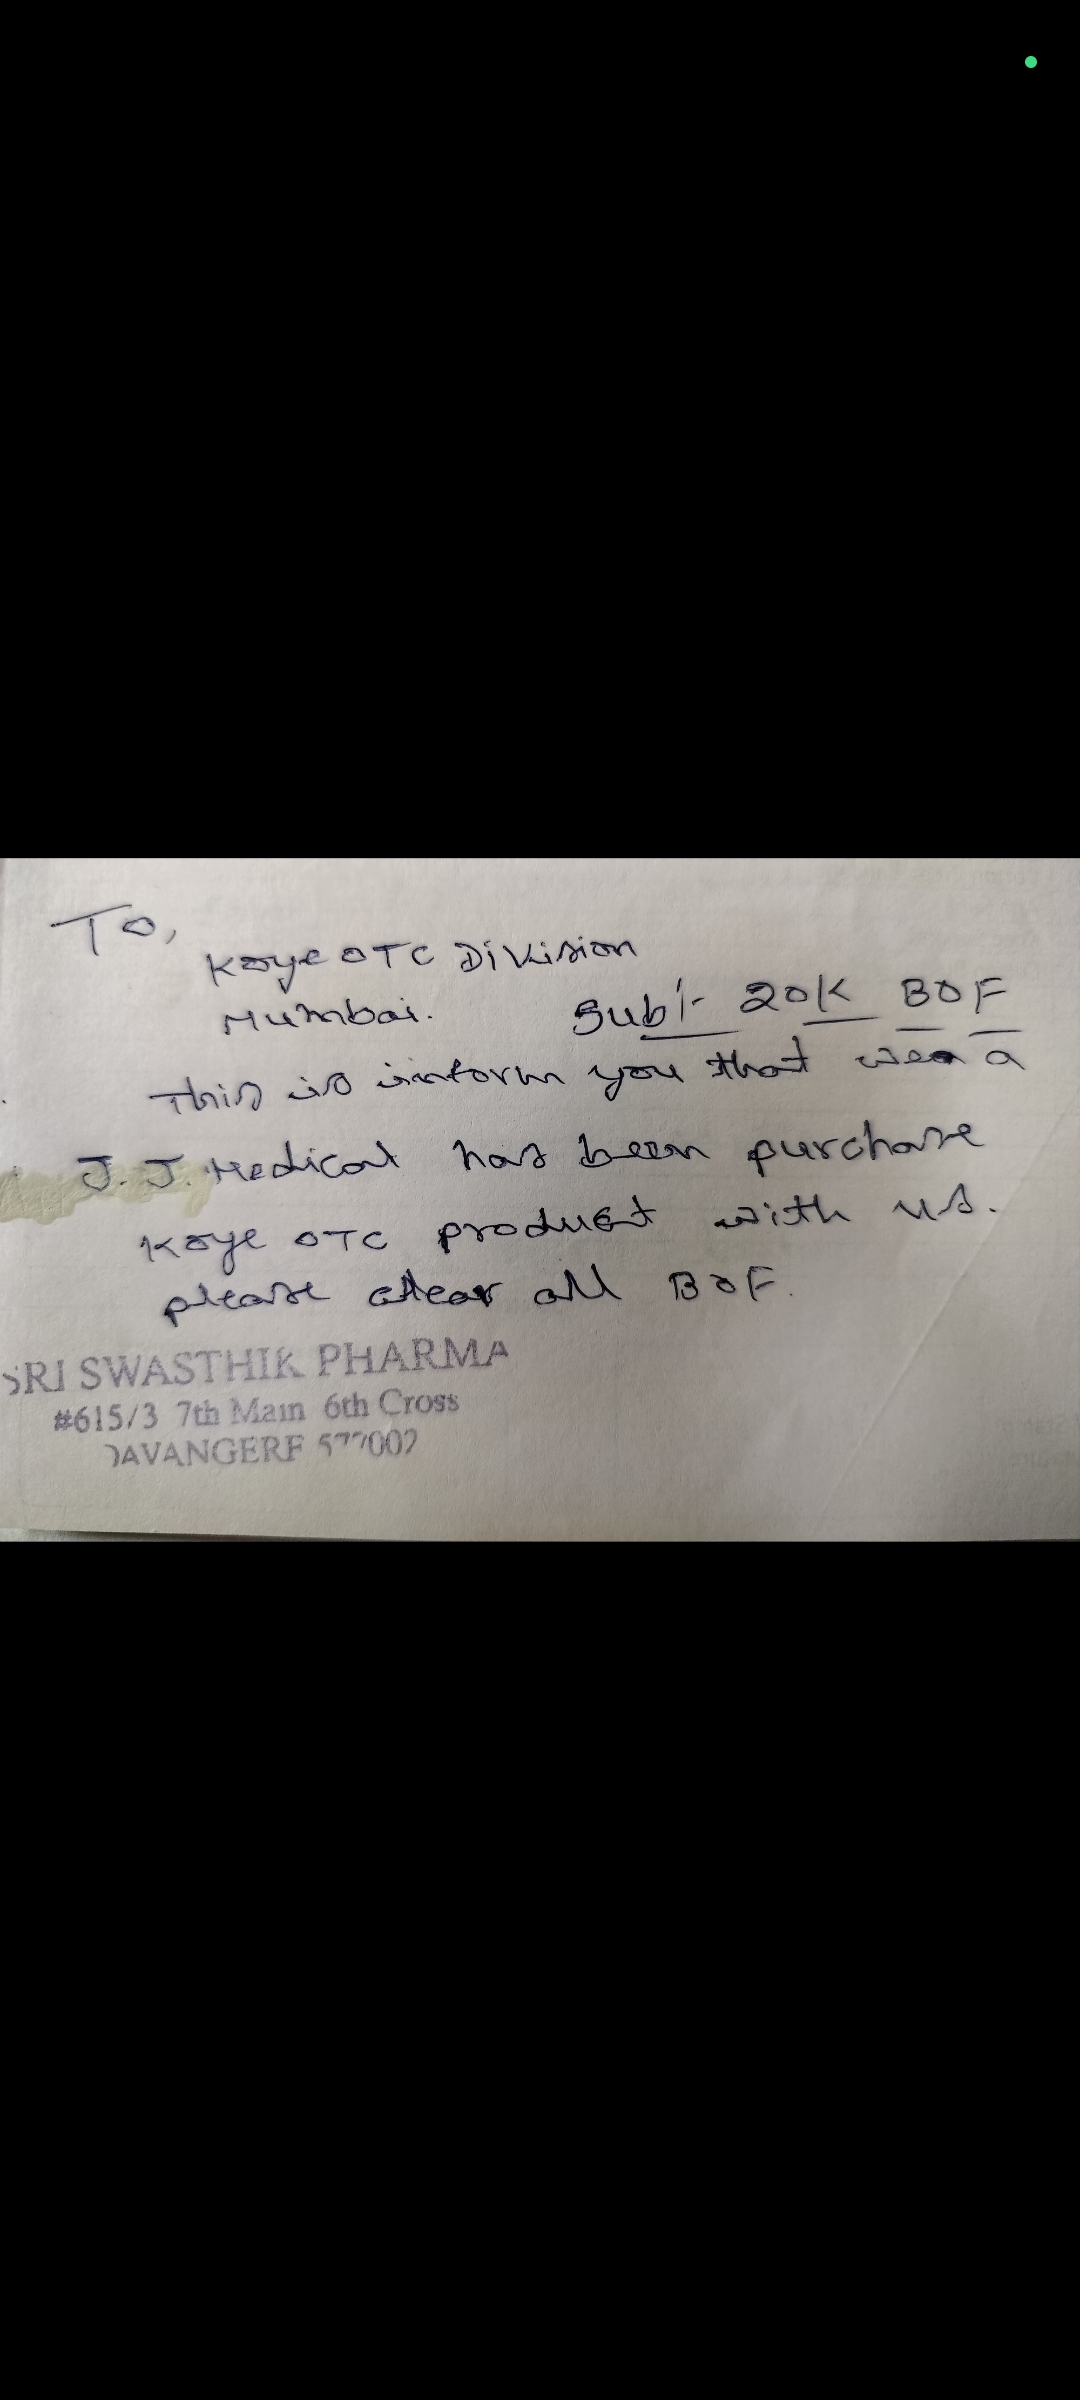 To,
Koye OTC Division
Mumbai. Sub:- 20K BOF
This is inform you that a
J. J. Medical has been purchase
Koye OTC product with us.
please clear all BOF.
SRI SWASTHIK PHARMA
#615/3 7th Main 6th Cross
DAVANGERE 577002